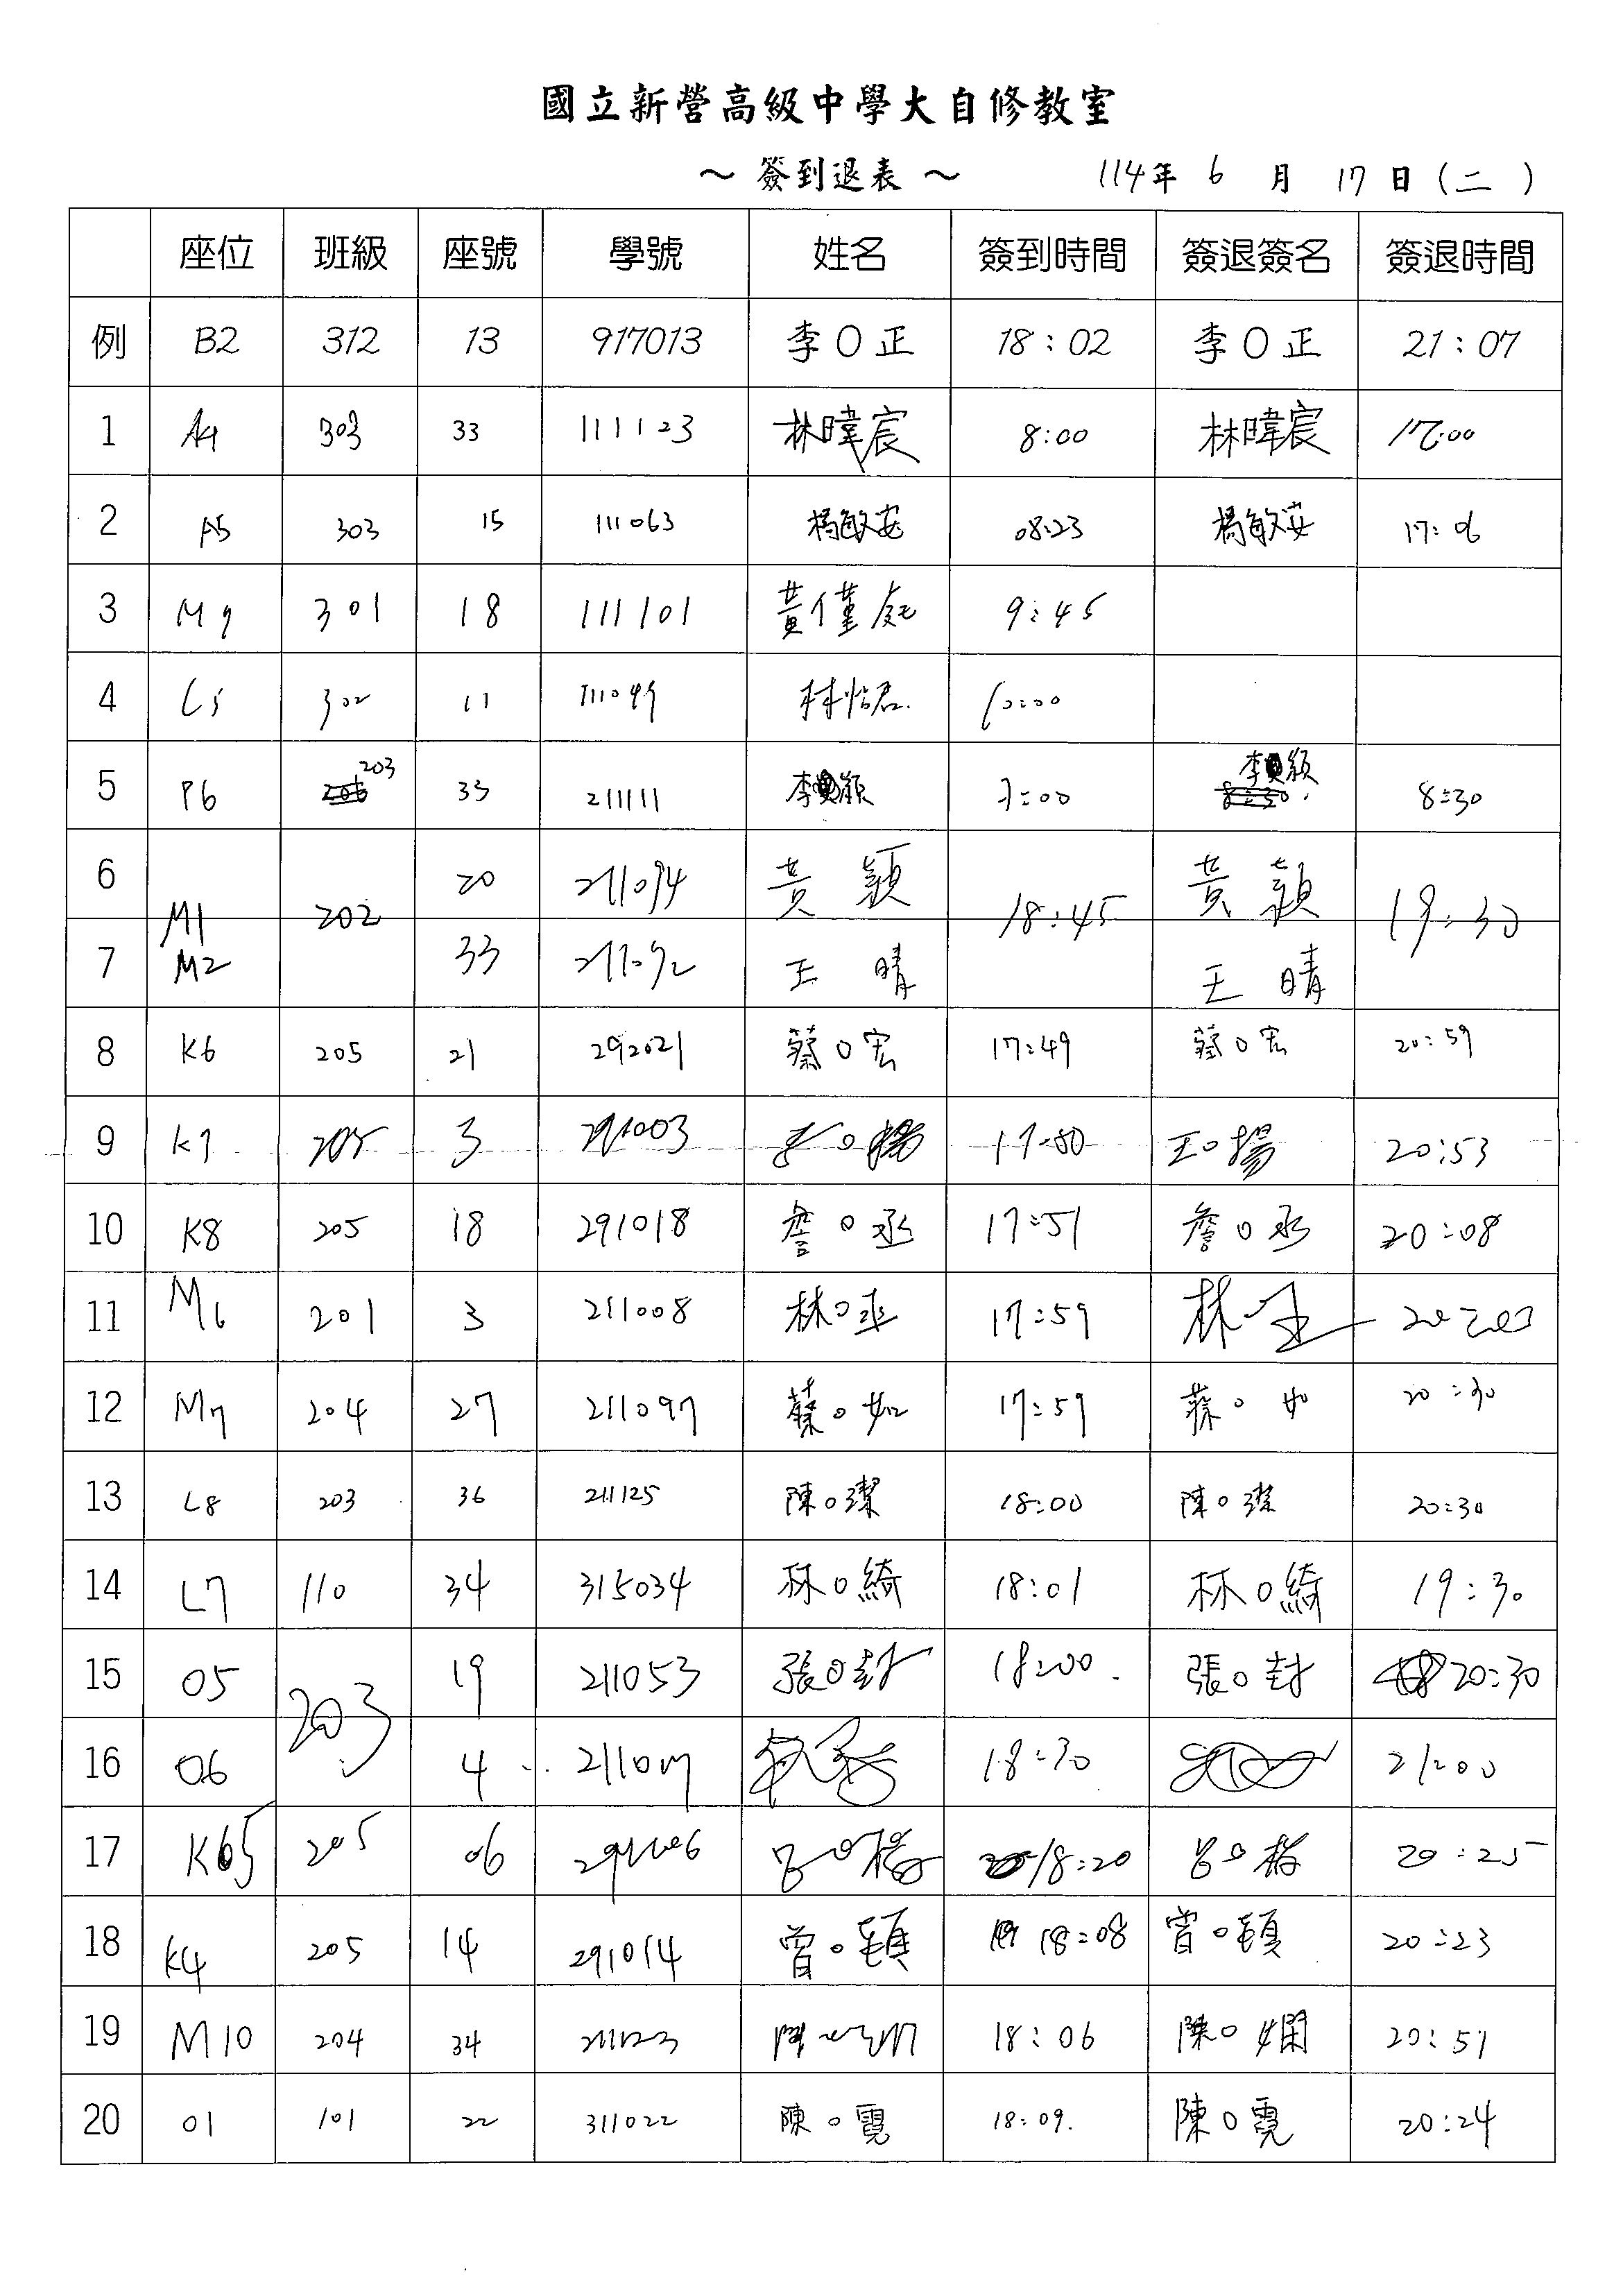 國立新營高級中學大自修教室
～ 簽到退表 ～ 114年 6 月 17 日 (二)
座位 班級 座號 學號 姓名 簽到時間 簽退簽名 簽退時間
例 B2 312 13 917013 李〇正 18:02 李〇正 21:07
1 A4 303 33 111123 林暐宸 8:00 林暐宸 17:00
2 A5 303 15 111063 楊敏妘 08:23 楊敏妘 17:06
3 M9 301 18 111101 黃僅 9:45
4 L5 302 11 林怡君 10:00
5 P6 203 33 211111 李 穎 7:00 李 穎 8:30
6 M1 202 20 211094 黃 穎 18:45 黃 穎 19:30
7 M2 33 211092 王 晴 王 晴
8 K6 205 21 292021 蔡〇宏 17:49 蔡〇宏 20:59
9 K7 205 3 291003 王〇揚 17:50 王〇揚 20:53
10 K8 205 18 291018 詹〇丞 17:51 詹〇丞 20:08
11 M6 201 3 211008 林〇丞 17:59 林〇 20:
12 M7 204 27 211097 蔡〇如 17:59 蔡〇如 20:30
13 L8 203 36 211125 陳〇潔 18:00 陳〇潔 20:30
14 L7 110 34 315034 林〇綺 18:01 林〇綺 19:30
15 O5 203 19 211053 張〇封 18:00 張〇封 20:30
16 O6 4 18:30 21:00
17 K5 205 06 291006 呂〇 18:20 呂〇 20:25
18 K4 205 14 291014 曾〇頴 18:08 曾〇頴 20:23
19 M10 204 34 211123 陳〇嫻 18:06 陳〇嫻 20:51
20 O1 101 22 311022 陳〇霓 18:09 陳〇霓 20:24